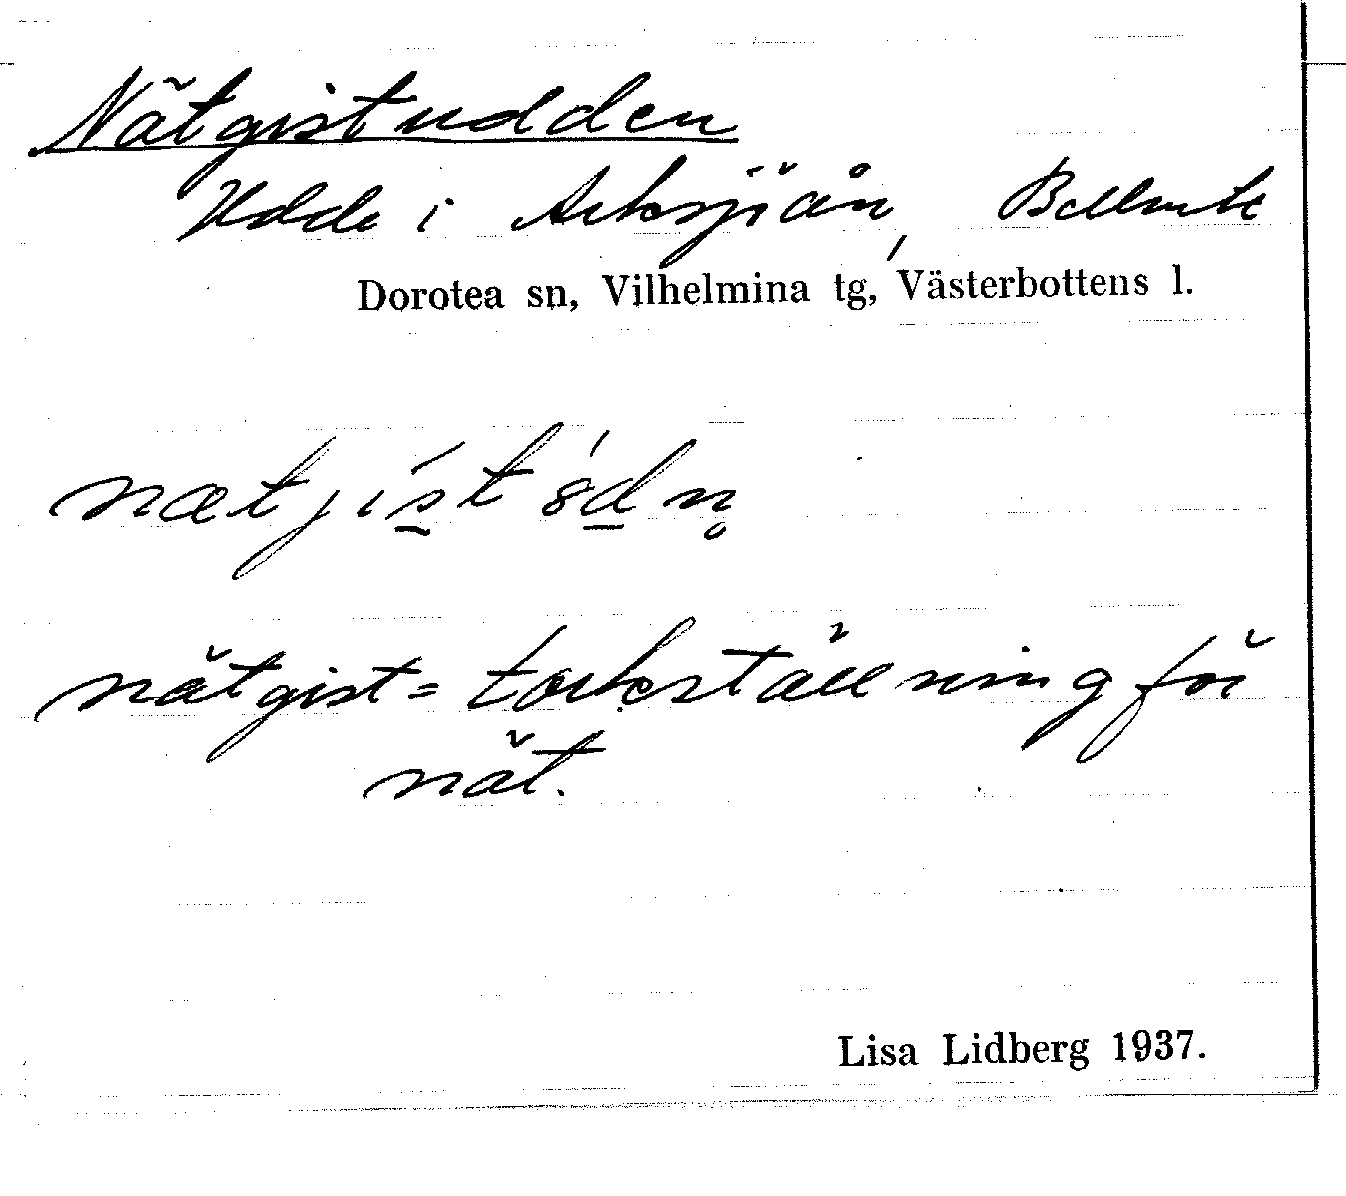 Nätgistudden
Udde i Arksjöån,
Dorotea sn, Vilhelmina tg, Västerbottens l.
nätgist = torkställning för
nät.
Lisa Lidberg 1937.